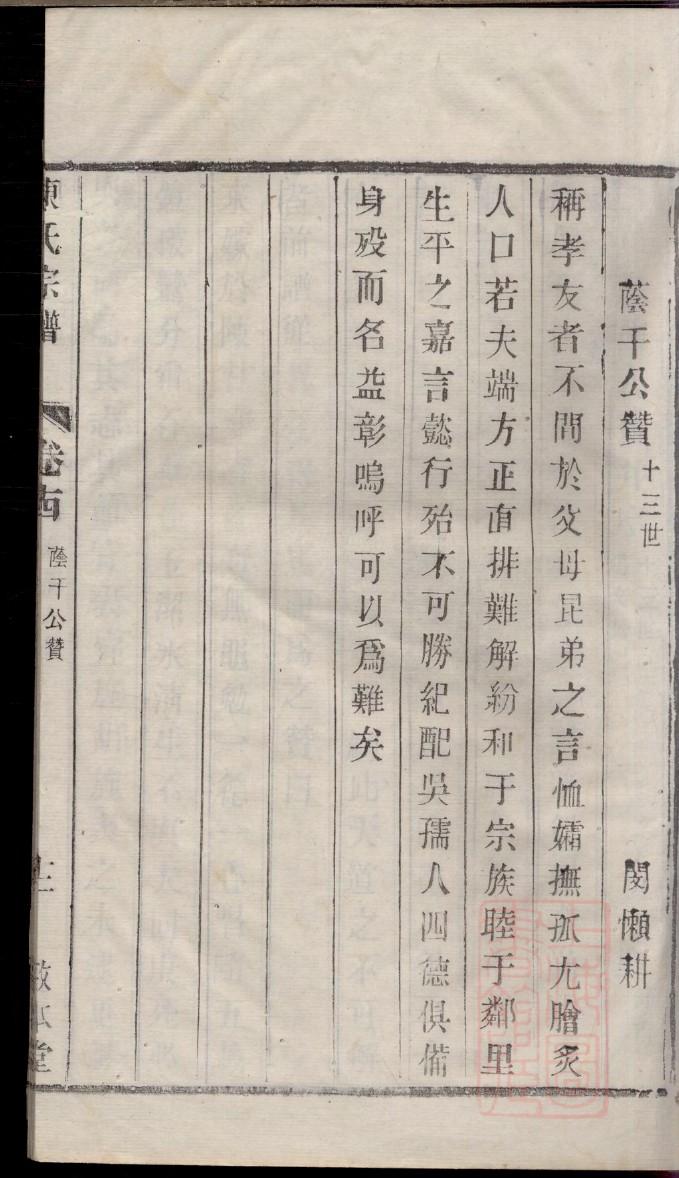 蔭干公贊 十三世 閔懶耕
稱孝友者不間於父母昆弟之言恤孀撫孤尤膾炙
人口若夫端方正直排難解紛和于宗族睦于鄰里
生平之嘉言懿行殆不可勝紀配吳孺人四德俱備
身歿而名益彰嗚呼可以爲難矣
陳氏宗譜 卷十四 蔭干公贊 敬本堂